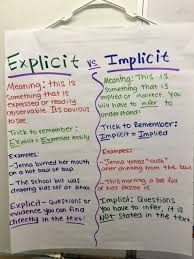 Explicit vs Implicit
Meaning: this is
something that is
expressed or readily
observable. Its obvious
to see.
Trick to remember:
Explicit = Expressed easily
Examples:
- Jenna burned her mouth
on a hot bowl of soup
- The school bus was
driving kids off at
Explicit - Questions or
evidence you can find
directly in the text!
Meaning: This is
something that is
implied or indirect. You
will have to infer to
understand!
Trick to Remember:
Implicit = Implied
Examples:
- Jenna yelled "ouch"
after drinking from the bowl
- This morning, a
of kids passed
Implicit: Questions
you have to infer, it
is NOT stated in the text